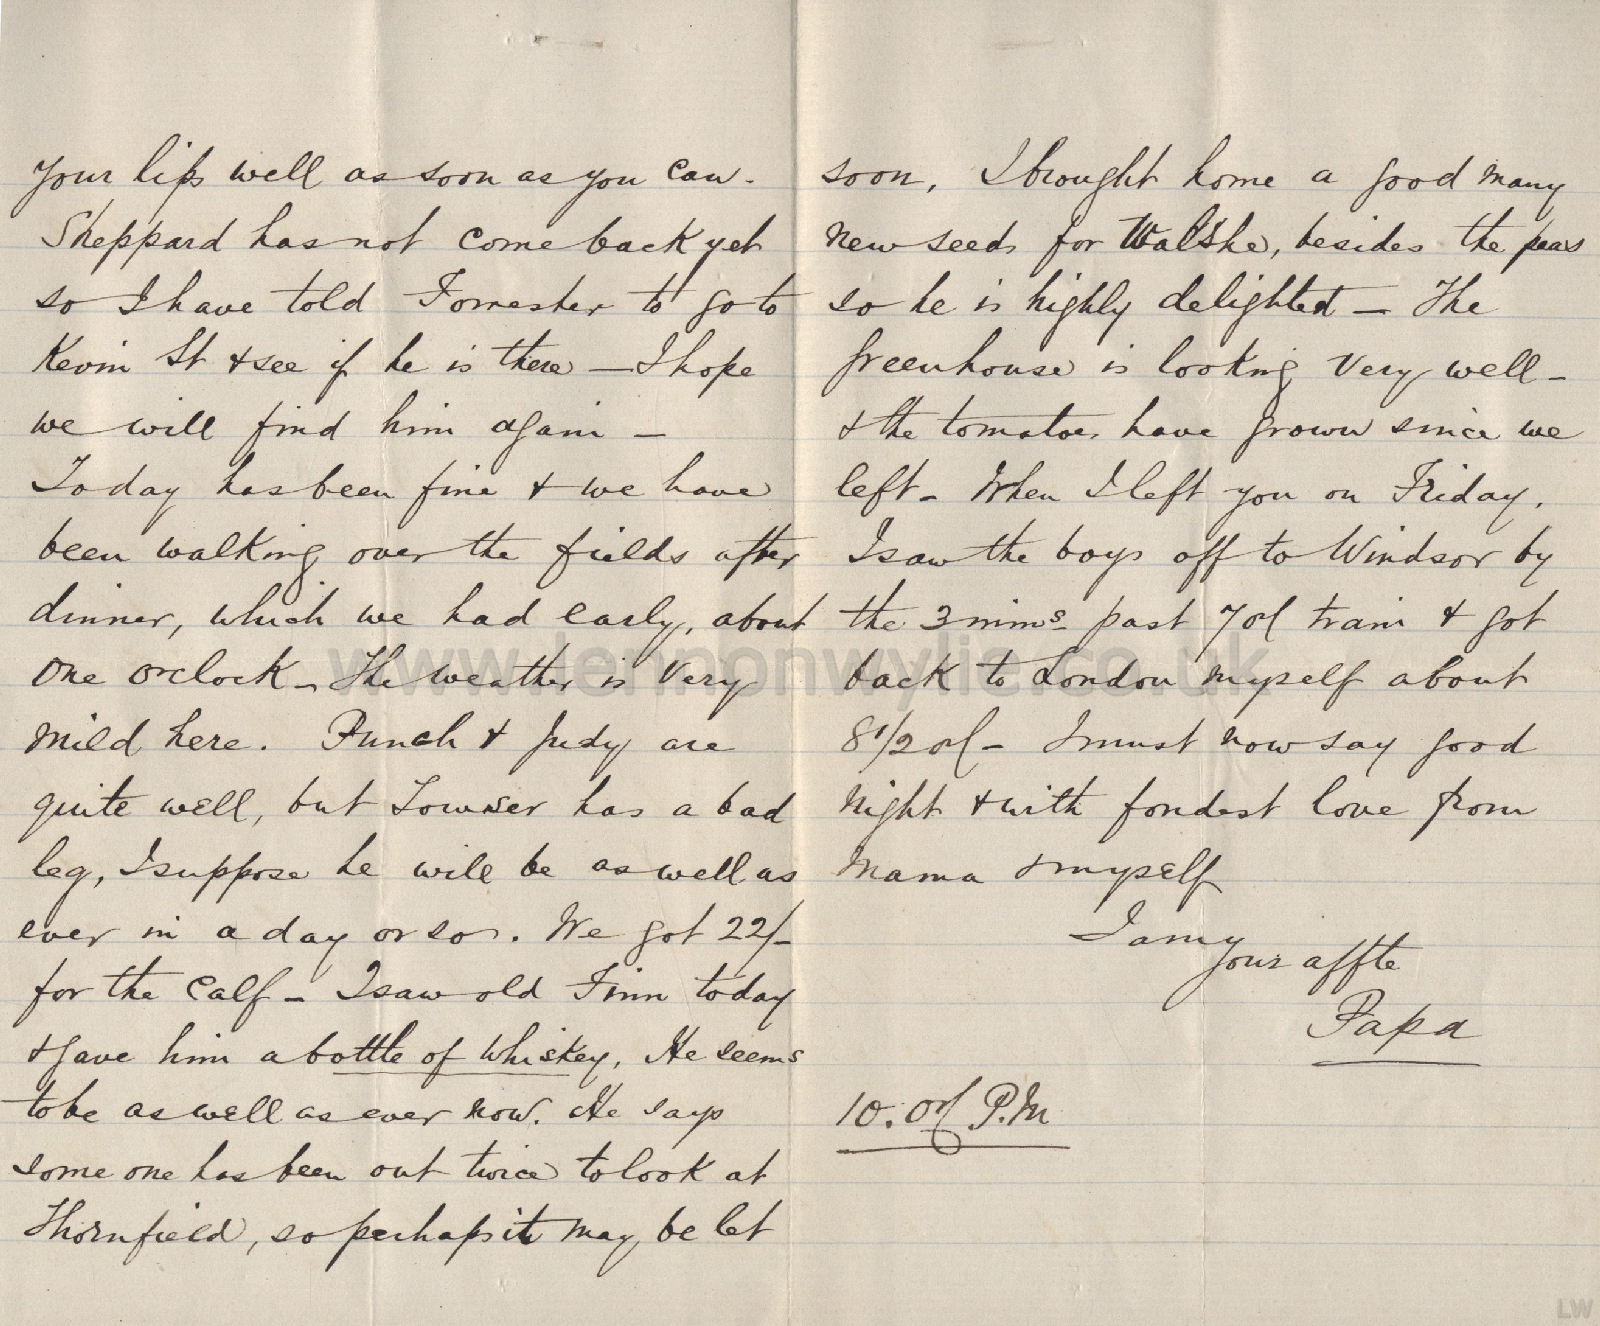 your lips well as soon as you can.
Sheppard has not come back yet
so I have told Forrester to go to
Kevin St & see if he is there — I hope
we will find him again —
Today has been fine & we have
been walking over the fields after
dinner, which we had early, about
one o'clock — The weather is very
mild here. Punch & Judy are
quite well, but Towser has a bad
leg, I suppose he will be as well as
ever in a day or so. We got 22/-
for the calf — I saw old Finn today
& gave him a bottle of whiskey, He seems
to be as well as ever now. He says
some one has been out twice to look at
Thornfield, so perhaps it may be let
soon, I brought home a good many
new seeds for Walshe, besides the peas
so he is highly delighted — The
greenhouse is looking very well —
& the tomatoes have grown since we
left — When I left you on Friday,
I saw the boys off to Windsor by
the 3 mins past 7 ocl train & got
back to London myself about
8 1/2 ocl — I must now say good
night & with fondest love from
Mama & myself
I am
your affte
Papa
10. ocl P.M
www.lennonwylie.co.uk
LW